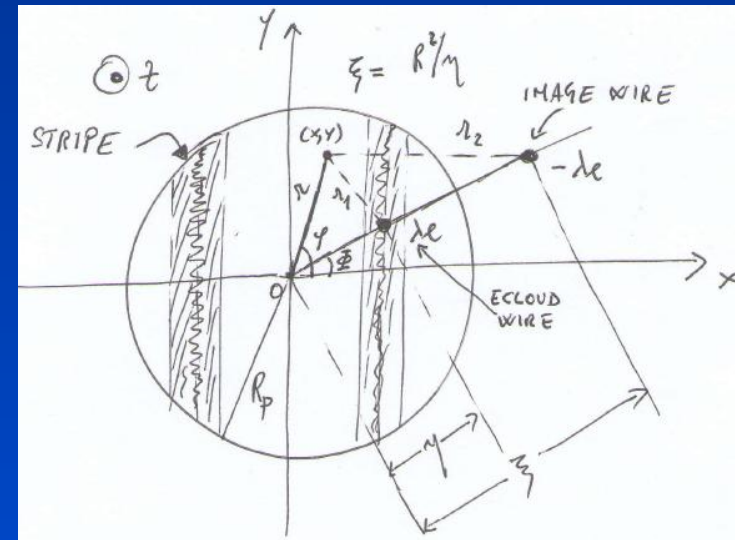 y
z
ξ = R²/η
IMAGE WIRE
STRIPE
(x,y)
r₂
-λe
r
r₁
λe
φ
Φ
O
x
ECLOUD
WIRE
Rp
η
ξ